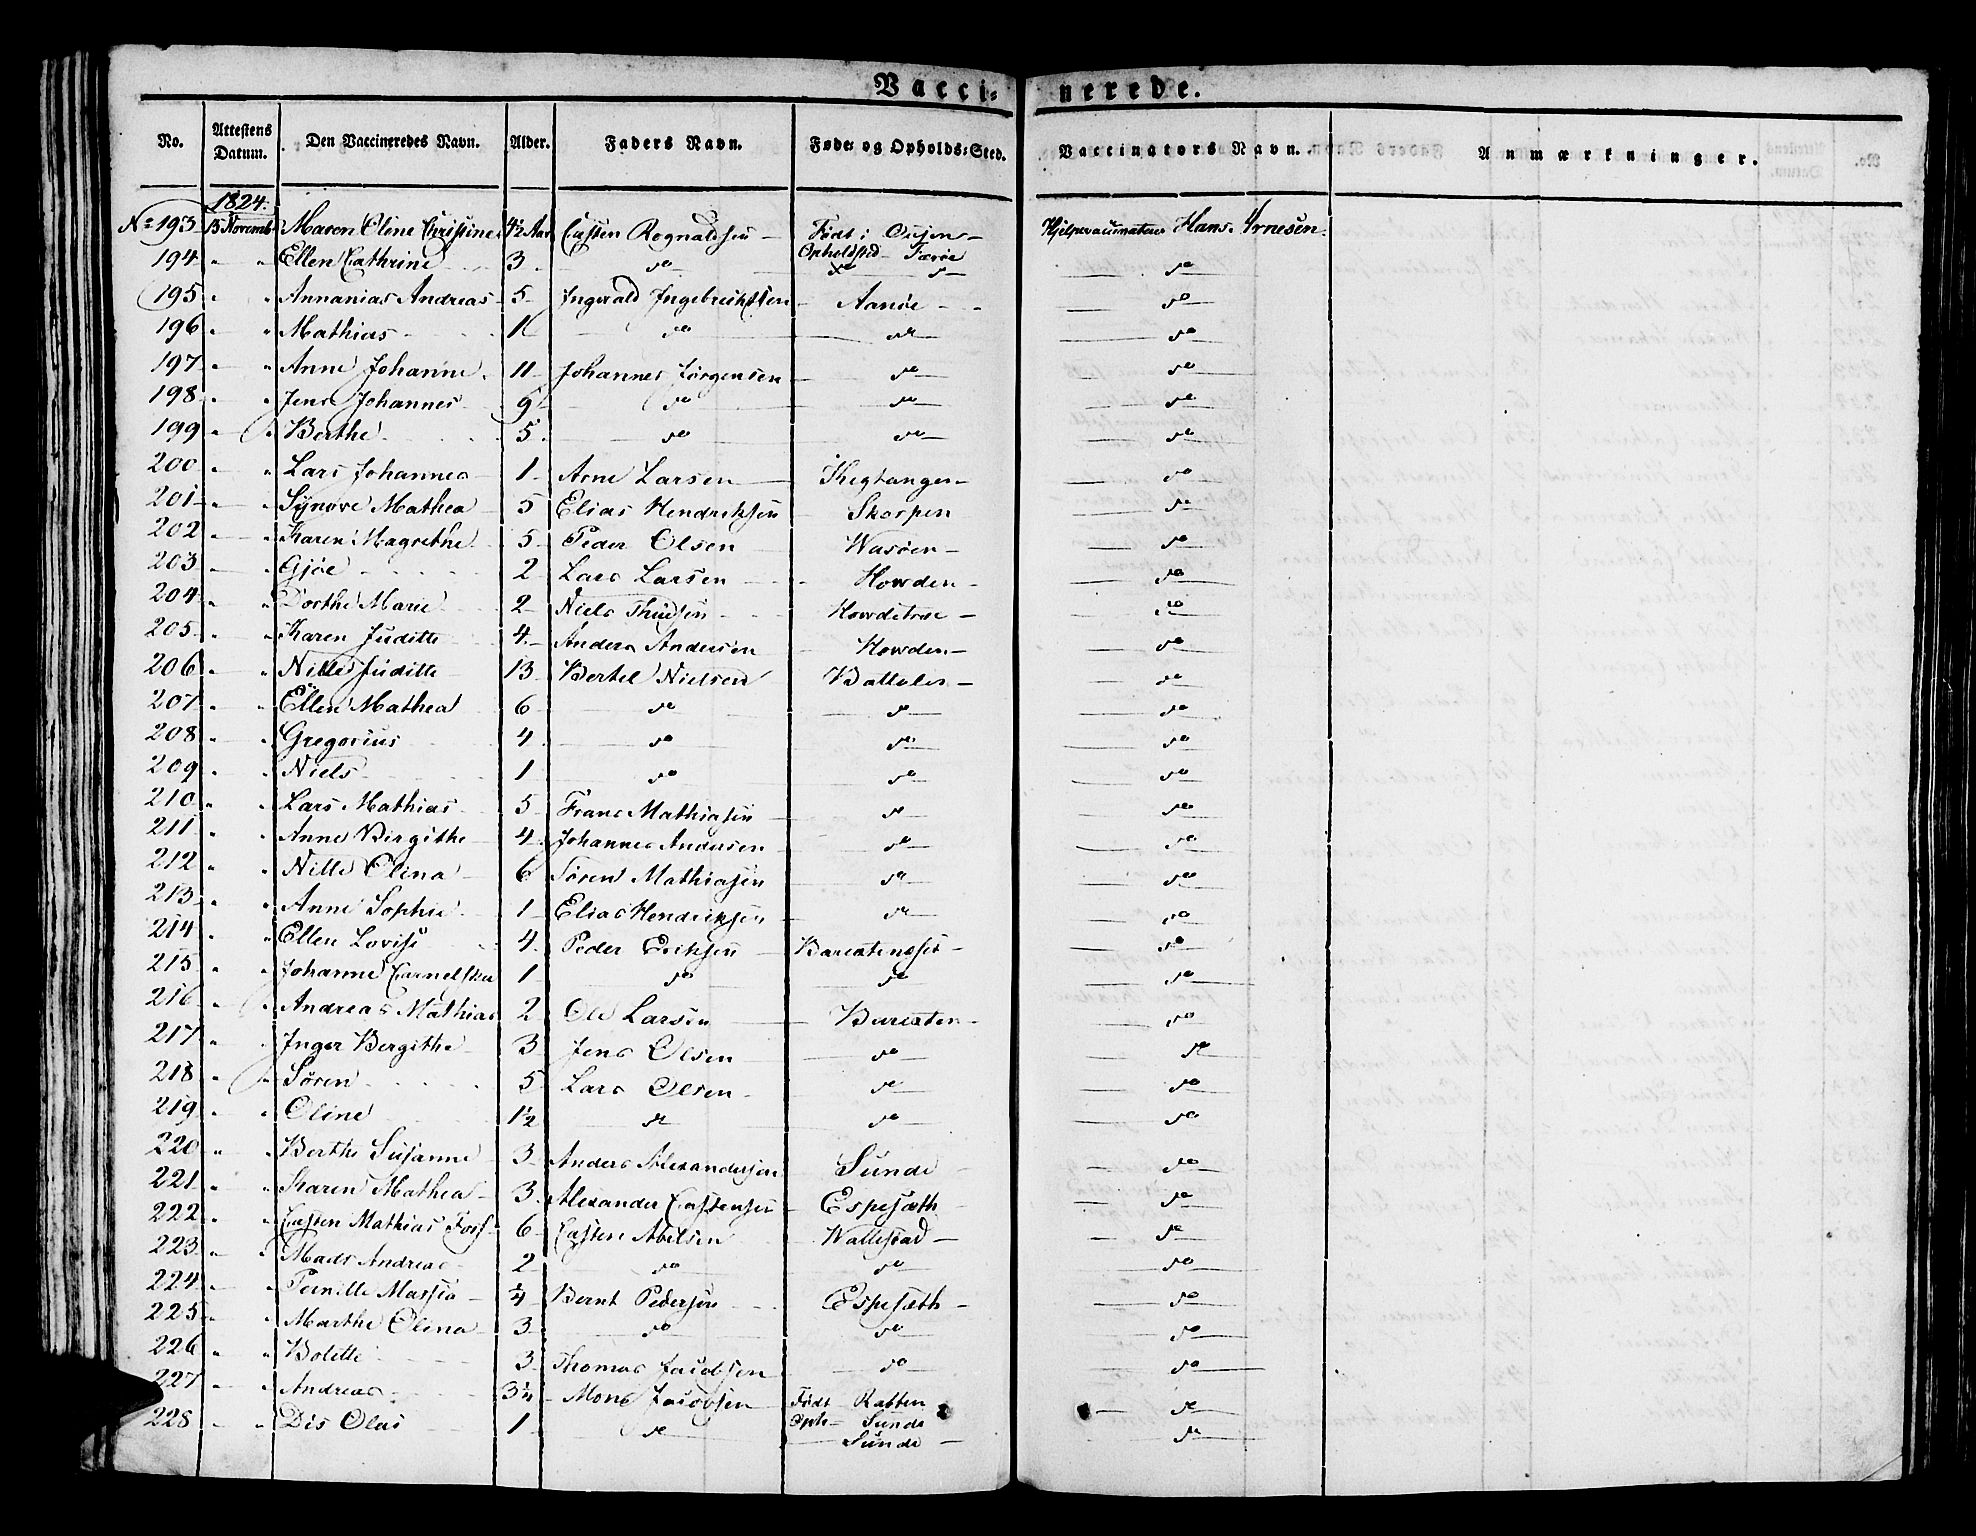 Vacci- nerede.
No. | Attestens Datum. | Den Vaccineredes Navn. | Alder. | Faders Navn. | Føde- og Opholds-Sted. | Vaccinators Navn. | Anmærkninger.
1824.
No 193 | 15 Novemb | Maren Oline Christine | 4½ Aar | Casten Rognaldsen | Født i Ousen | Hjelpevaccinateur Hans Arnesen.
Opholdsted Færøe
194 " " | Ellen Cathrine | 3 | do | do do | do
195 " " | Annanias Andreas | 5 | Ingvald Ingebrichtsen | Aanøe | do
196 " " | Mathias | 1 | do | do | do
197 " " | Anne Johanne | 11 | Johannes Jørgensen | do | do
198 " " | Jens Johannes | 9 | do | do | do
199 " " | Berthe | 5 | do | do | do
200 " " | Lars Johannes | 1 | Arne Larsen | Kegtangen | do
201 " " | Synøve Mathea | 5 | Elias Hendriksen | Skorpen | do
202 " " | Karen Magrethe | 5 | Peder Olsen | Wasøen | do
203 " " | Gjøe | 2 | Lars Larsen | Howden | do
204 " " | Dorthe Marie | 2 | Niels Thuesen | Howditræ | do
205 " " | Karen Juditte | 4 | Anders Andersen | Howden | do
206 " " | Nille Juditte | 13 | Bertel Nielsen | Battalen | do
207 " " | Ellen Mathea | 6 | do | do | do
208 " " | Gregorius | 4 | do | do | do
209 " " | Niels | 1 | do | do | do
210 " " | Lars Mathias | 5 | Frans Mathiasen | do | do
211 " " | Anne Birgithe | 4 | Johannes Andersen | do | do
212 " " | Nille Olina | 6 | Søren Mathiasen | do | do
213 " " | Anne Sophie | 1 | Elias Hendriksen | do | do
214 " " | Ellen Lovise | 4 | Peder Eriksen | Barextensset | do
215 " " | Johanne | 1 | do | do | do
216 " " | Andreas Mathias | 2 | Ole Larsen | Barexten | do
217 " " | Inger Bergithe | 3 | Jens Olsen | do | do
218 " " | Søren | 5 | Lars Olsen | do | do
219 " " | Oline | 1½ | do | do | do
220 " " | Berthe Susanne | 3 | Anders Alexandersen | Sunde | do
221 " " | Karen Mathea | 3 | Alexander Castensen | Espesæth | do
222 " " | Casten Mathias | 6 | Casten Abelsen | Wallestad | do
223 " " | Mads Andreas | 2 | do | do | do
224 " " | Pernille Massia | ¼ | Bernt Pedersen | Espesæth | do
225 " " | Marthe Olina | 3 | do | do | do
226 " " | Bolette | 3 | Thomas Jacobsen | do | do
227 " " | Andreas | 3¼ | Mons Jacobsen | Født Ratten | do
Oph. Sunde
228 " " | Dis Olai | 1 | do | Sunde | do